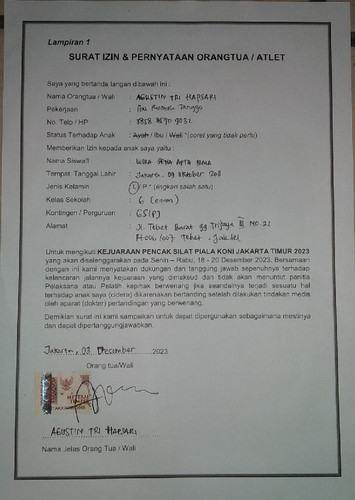 Lampiran 1
SURAT IZIN & PERNYATAAN ORANGTUA / ATLET
Saya yang bertanda tangan dibawah ini :
Nama Orangtua / Wali : AGUSTIN TRI HAPSARI
Pekerjaan : Ibu Rumah Tangga
No. Telp / HP :
Status Terhadap Anak : Ayah / Ibu / Wali *(coret yang tidak perlu)
Memberikan Izin kepada anak saya yaitu :
Nama Siswa/i :
Tempat Tanggal Lahir : Jakarta, 09 Oktober 2011
Jenis Kelamin : L / P * (lingkari salah satu)
Kelas Sekolah : 6 (enam)
Kontingen / Perguruan : GSIPJ
Alamat : Jl. Tebet Barat gg Trijaya III NO. 21
Rt 006/007 Tebet - Jaksel
Untuk mengikuti KEJUARAAN PENCAK SILAT PIALA KONI JAKARTA TIMUR 2023
yang akan diselenggarakan pada Senin – Rabu, 18 - 20 Desember 2023. Bersamaan
dengan ini kami menyatakan dukungan dan tanggung jawab sepenuhnya terhadap
kelancaran jalannya kejuaraan yang dimaksud dan tidak akan menuntut panitia
Pelaksana atau Pelatih kepihak berwenang jika seandainya terjadi sesuatu hal
terhadap anak saya (cidera) dikarenakan bertanding setelah dilakukan tindakan medis
oleh aparat (dokter) pertandingan yang berwenang.
Demikian surat ini kami sampaikan untuk dapat dipergunakan sebagaimana mestinya
dan dapat dipertanggungjawabkan.
Jakarta, 03 December 2023
Orang tua/Wali
AGUSTIN TRI HAPSARI
Nama Jelas Orang Tua / Wali